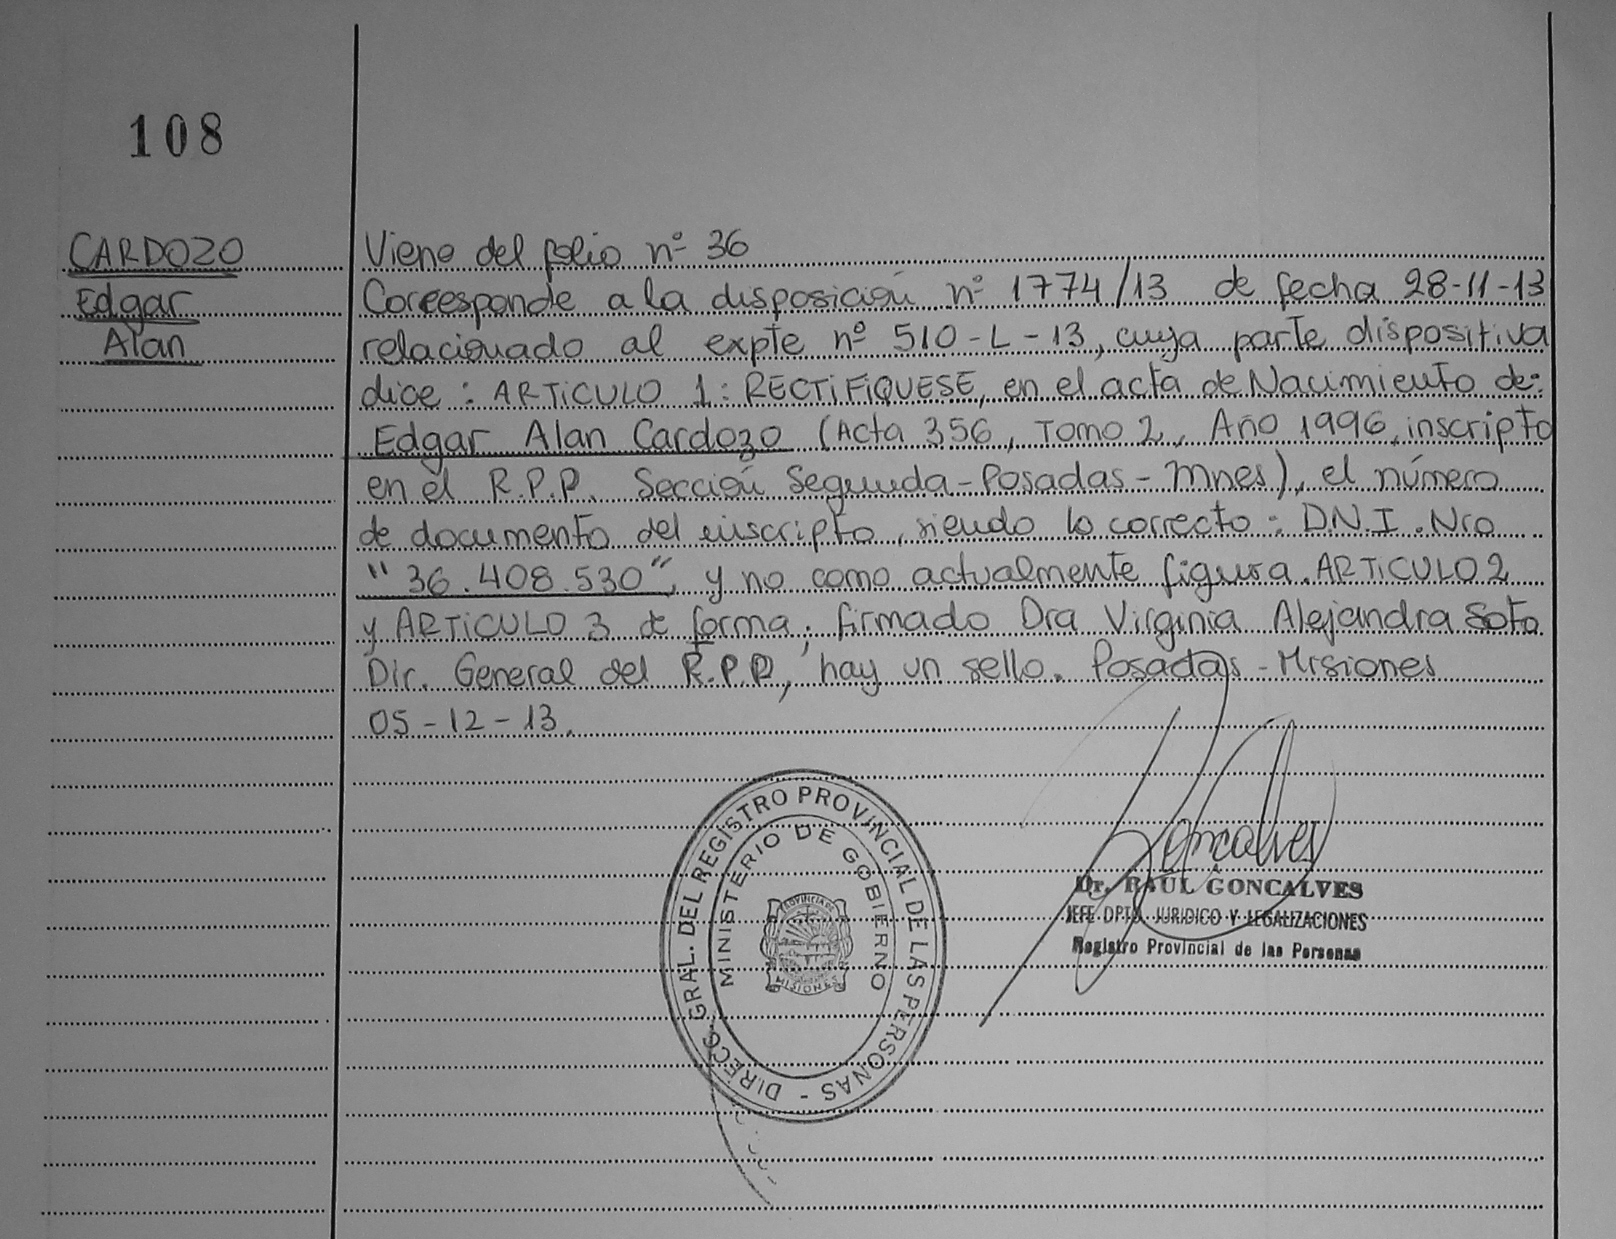 108
CARDOZO
Edgar
Alan
Viene del folio nº 36
Corresponde a la disposición nº 1774/13 de fecha 28-11-13
relacionado al expte nº 510-L-13, cuya parte dispositiva
dice: ARTICULO 1: RECTIFIQUESE, en el acta de Nacimiento de:
Edgar Alan Cardozo (Acta 356, Tomo 2, Año 1996, inscripto
en el R.P.P. Sección Segunda-Posadas-Mnes), el número
de documento del inscripto, siendo lo correcto: D.N.I. Nro
"36.408.530", y no como actualmente figura. ARTICULO 2
y ARTICULO 3 de forma; firmado Dra Virginia Alejandra Soto
Dir. General del R.P.P, hay un sello. Posadas-Misiones
05-12-13.
DIRECC. GRAL. DEL REGISTRO PROVINCIAL DE LAS PERSONAS -
MINISTERIO DE GOBIERNO
PROVINCIA DE
MISIONES
Goncalves
Dr. RAUL GONCALVES
JEFE DPTO. JURIDICO Y LEGALIZACIONES
Registro Provincial de las Personas